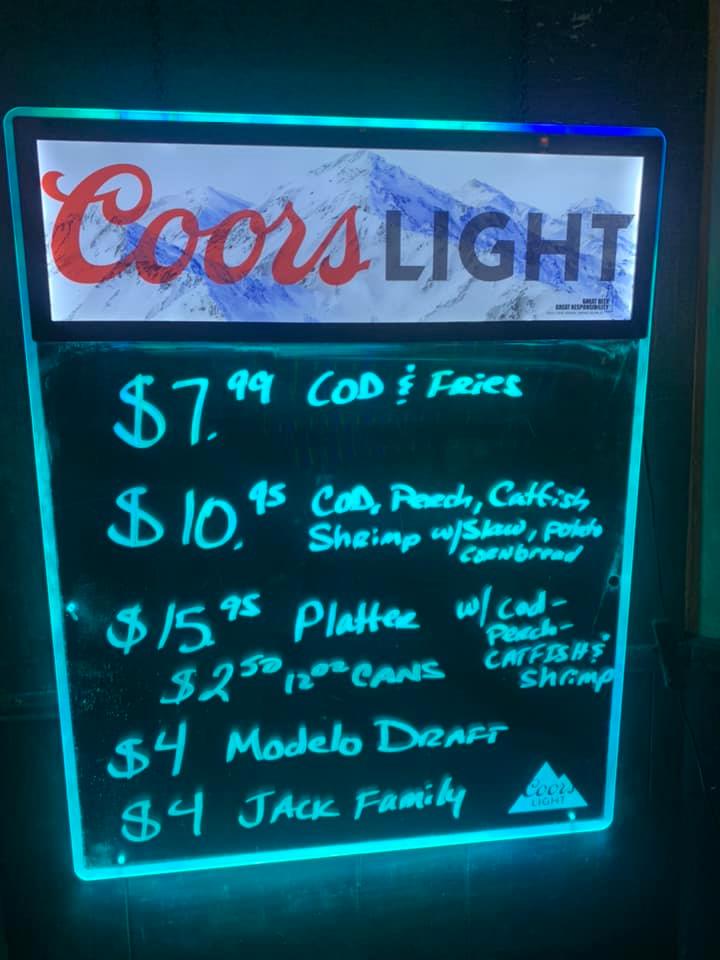 Coors LIGHT
GREAT BEER
GREAT RESPONSIBILITY
$7.99 COD & FRIES
$10.95 COD, Perch, Catfish
Shrimp w/Slaw, Potato
CORNbread
$15.95 Platter w/ Cod-
Perch-
CATFISH &
Shrimp
$2.50 12oz CANS
$4 Modelo DRAFT
$4 JACK Family
Coors
LIGHT